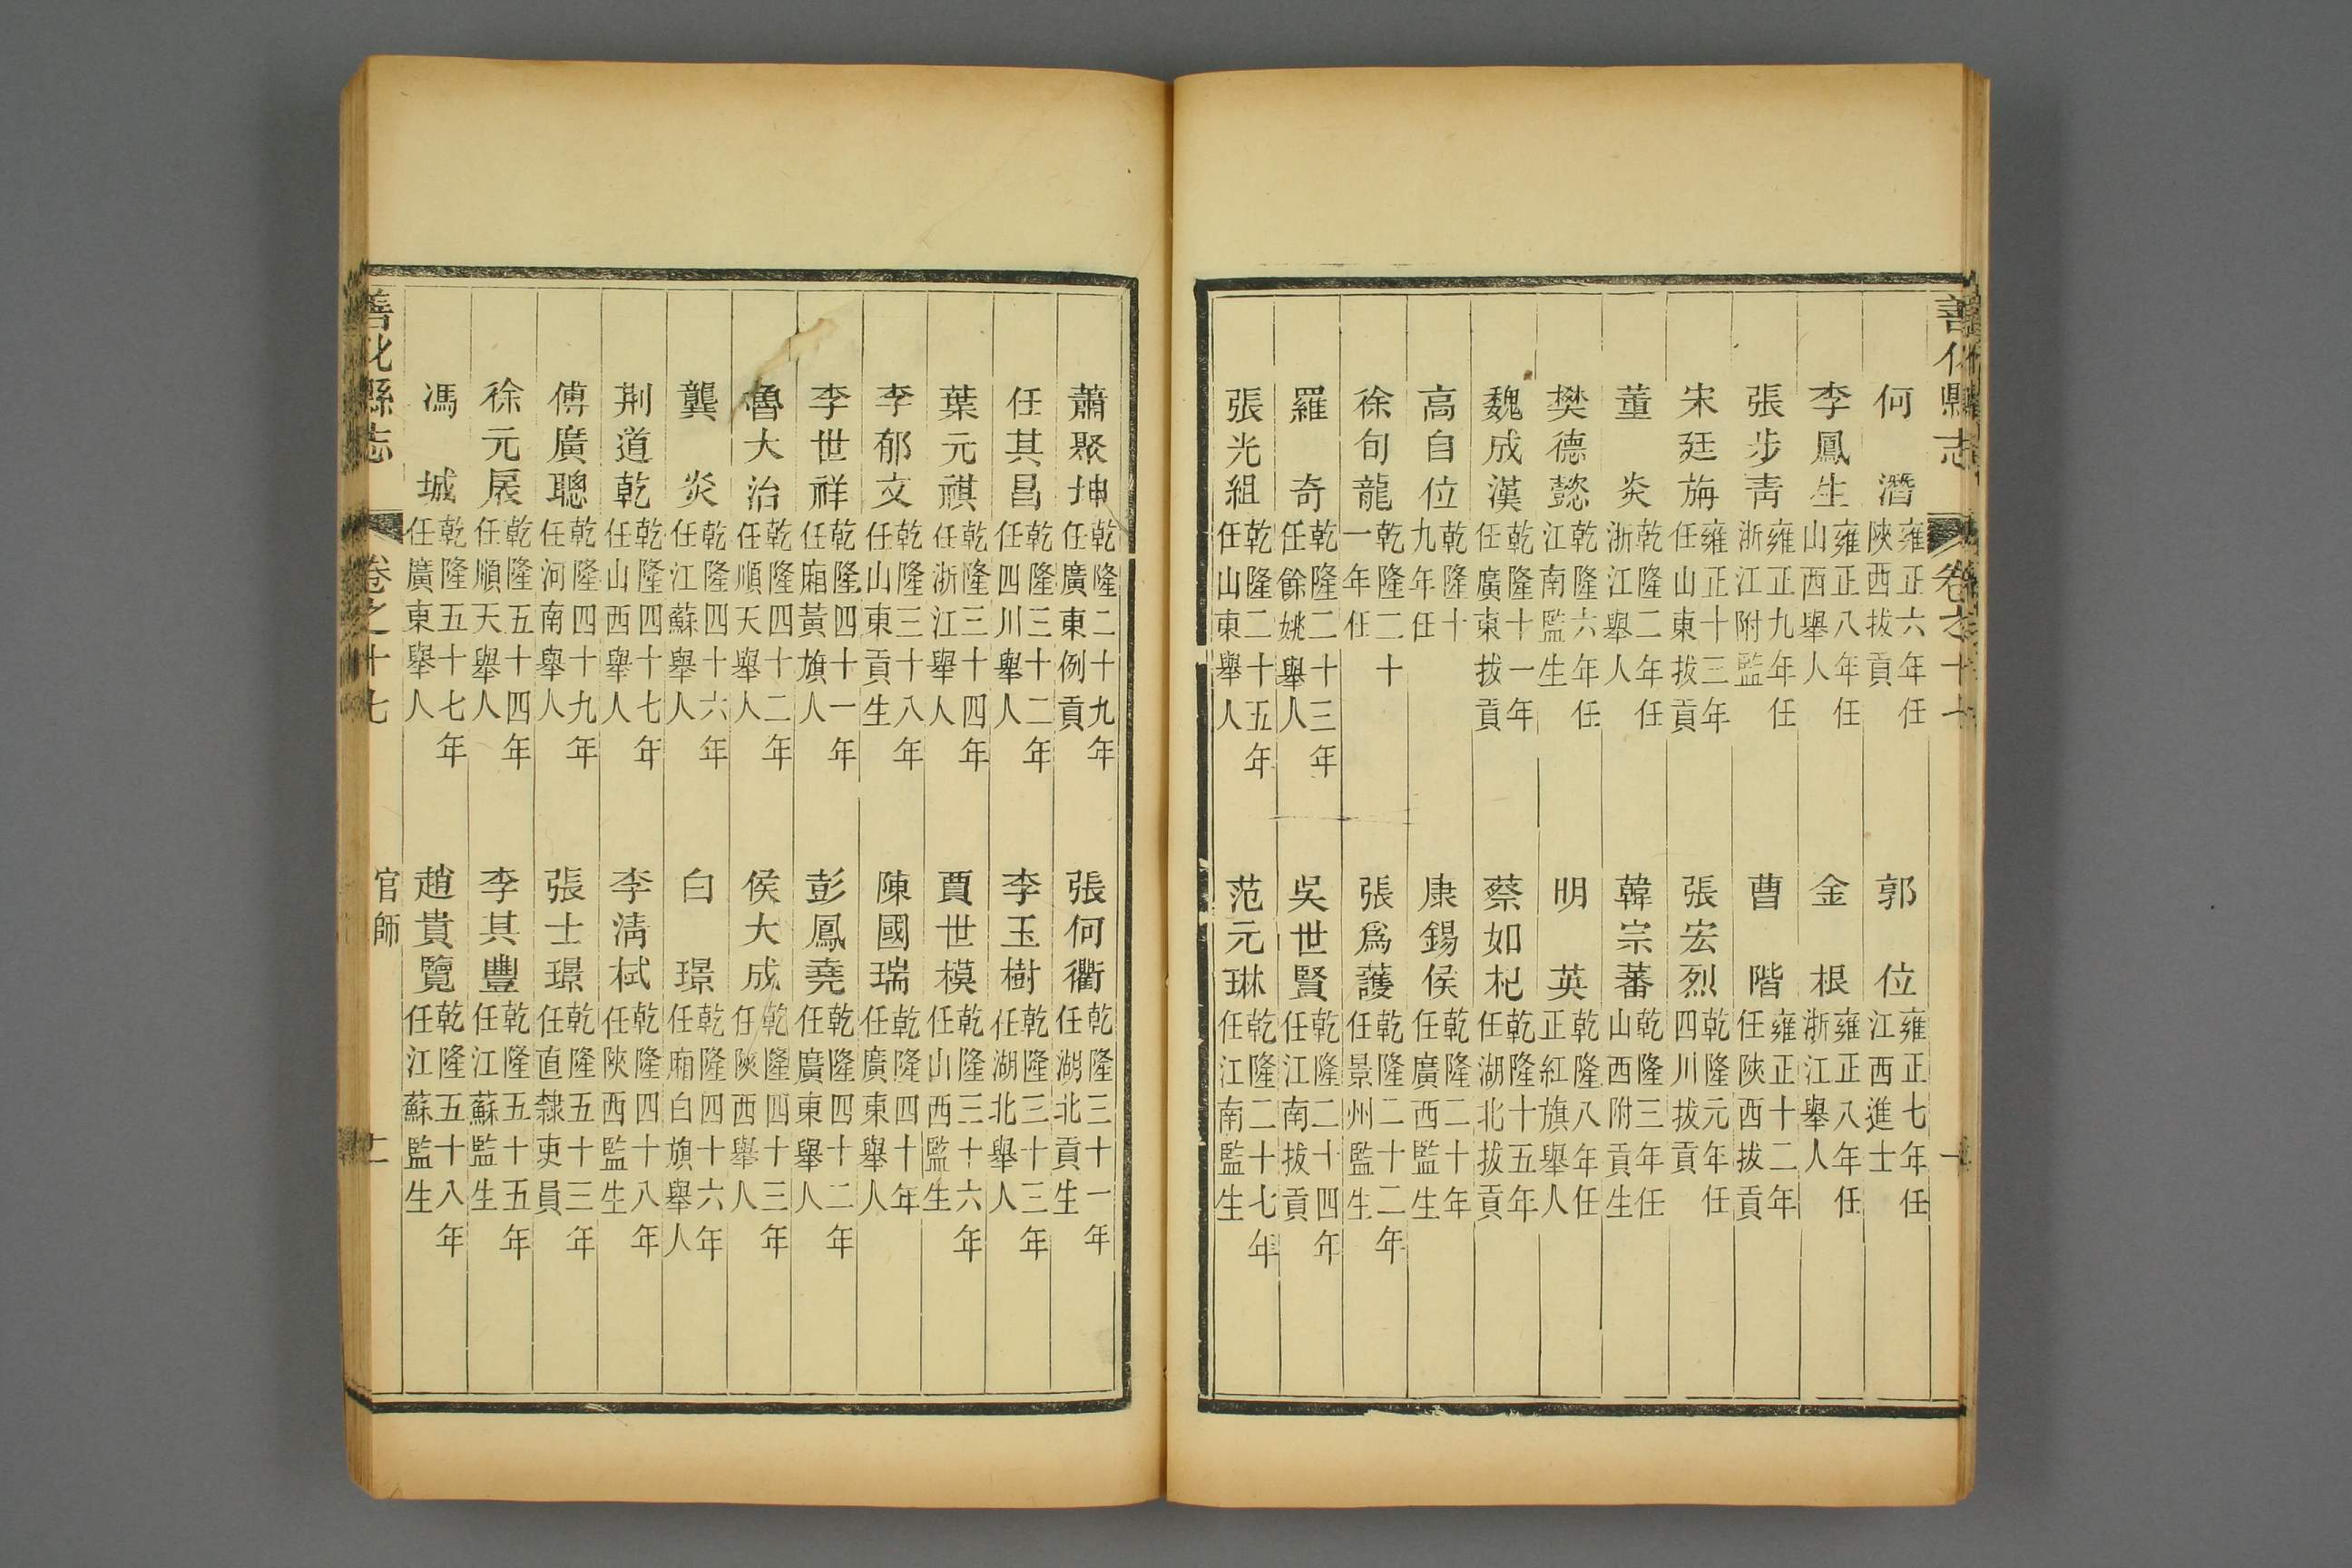 善化縣志 卷之十七
何潛 雍正六年任陝西拔貢 郭位 雍正七年任江西進士
李鳳生 雍正八年任山西舉人 金根 雍正八年任浙江舉人
張步青 雍正九年任浙江附監 曹階 雍正十二年任陝西拔貢
宋廷旃 雍正十三年任山東拔貢 張宏烈 乾隆元年任四川拔貢
董炎 乾隆二年任浙江舉人 韓宗蕃 乾隆三年任山西附貢生
樊德懿 乾隆六年任江南監生 明英 乾隆八年任正紅旗舉人
魏成漢 乾隆十一年任廣東拔貢 蔡如杞 乾隆十五年任湖北拔貢
高自位 乾隆十九年任 康錫侯 乾隆二十年任廣西監生
徐旬龍 乾隆二十一年任 張爲護 乾隆二十二年任景州監生
羅奇 乾隆二十三年任餘姚舉人 吳世賢 乾隆二十四年任江南拔貢
張光組 乾隆二十五年任山東舉人 范元琳 乾隆二十七年任江南監生
蕭聚坤 乾隆二十九年任廣東例貢 張何衢 乾隆三十一年任湖北貢生
任其昌 乾隆三十二年任四川舉人 李玉樹 乾隆三十三年任湖北舉人
葉元祺 乾隆三十四年任浙江舉人 賈世模 乾隆三十六年任山西監生
李郁文 乾隆三十八年任山東貢生 陳國瑞 乾隆四十年任廣東舉人
李世祥 乾隆四十一年任廂黃旗人 彭鳳堯 乾隆四十二年任廣東舉人
魯大治 乾隆四十二年任順天舉人 侯大成 乾隆四十三年任陝西舉人
龔炎 乾隆四十六年任江蘇舉人 白璟 乾隆四十六年任廂白旗舉人
荆道乾 乾隆四十七年任山西舉人 李清栻 乾隆四十八年任陝西監生
傅廣聰 乾隆四十九年任河南舉人 張士璟 乾隆五十三年任直隸吏員
徐元扆 乾隆五十四年任順天舉人 李其豐 乾隆五十五年任江蘇監生
馮城 乾隆五十七年任廣東舉人 趙貴覽 乾隆五十八年任江蘇監生
善化縣志 卷之十七 官師